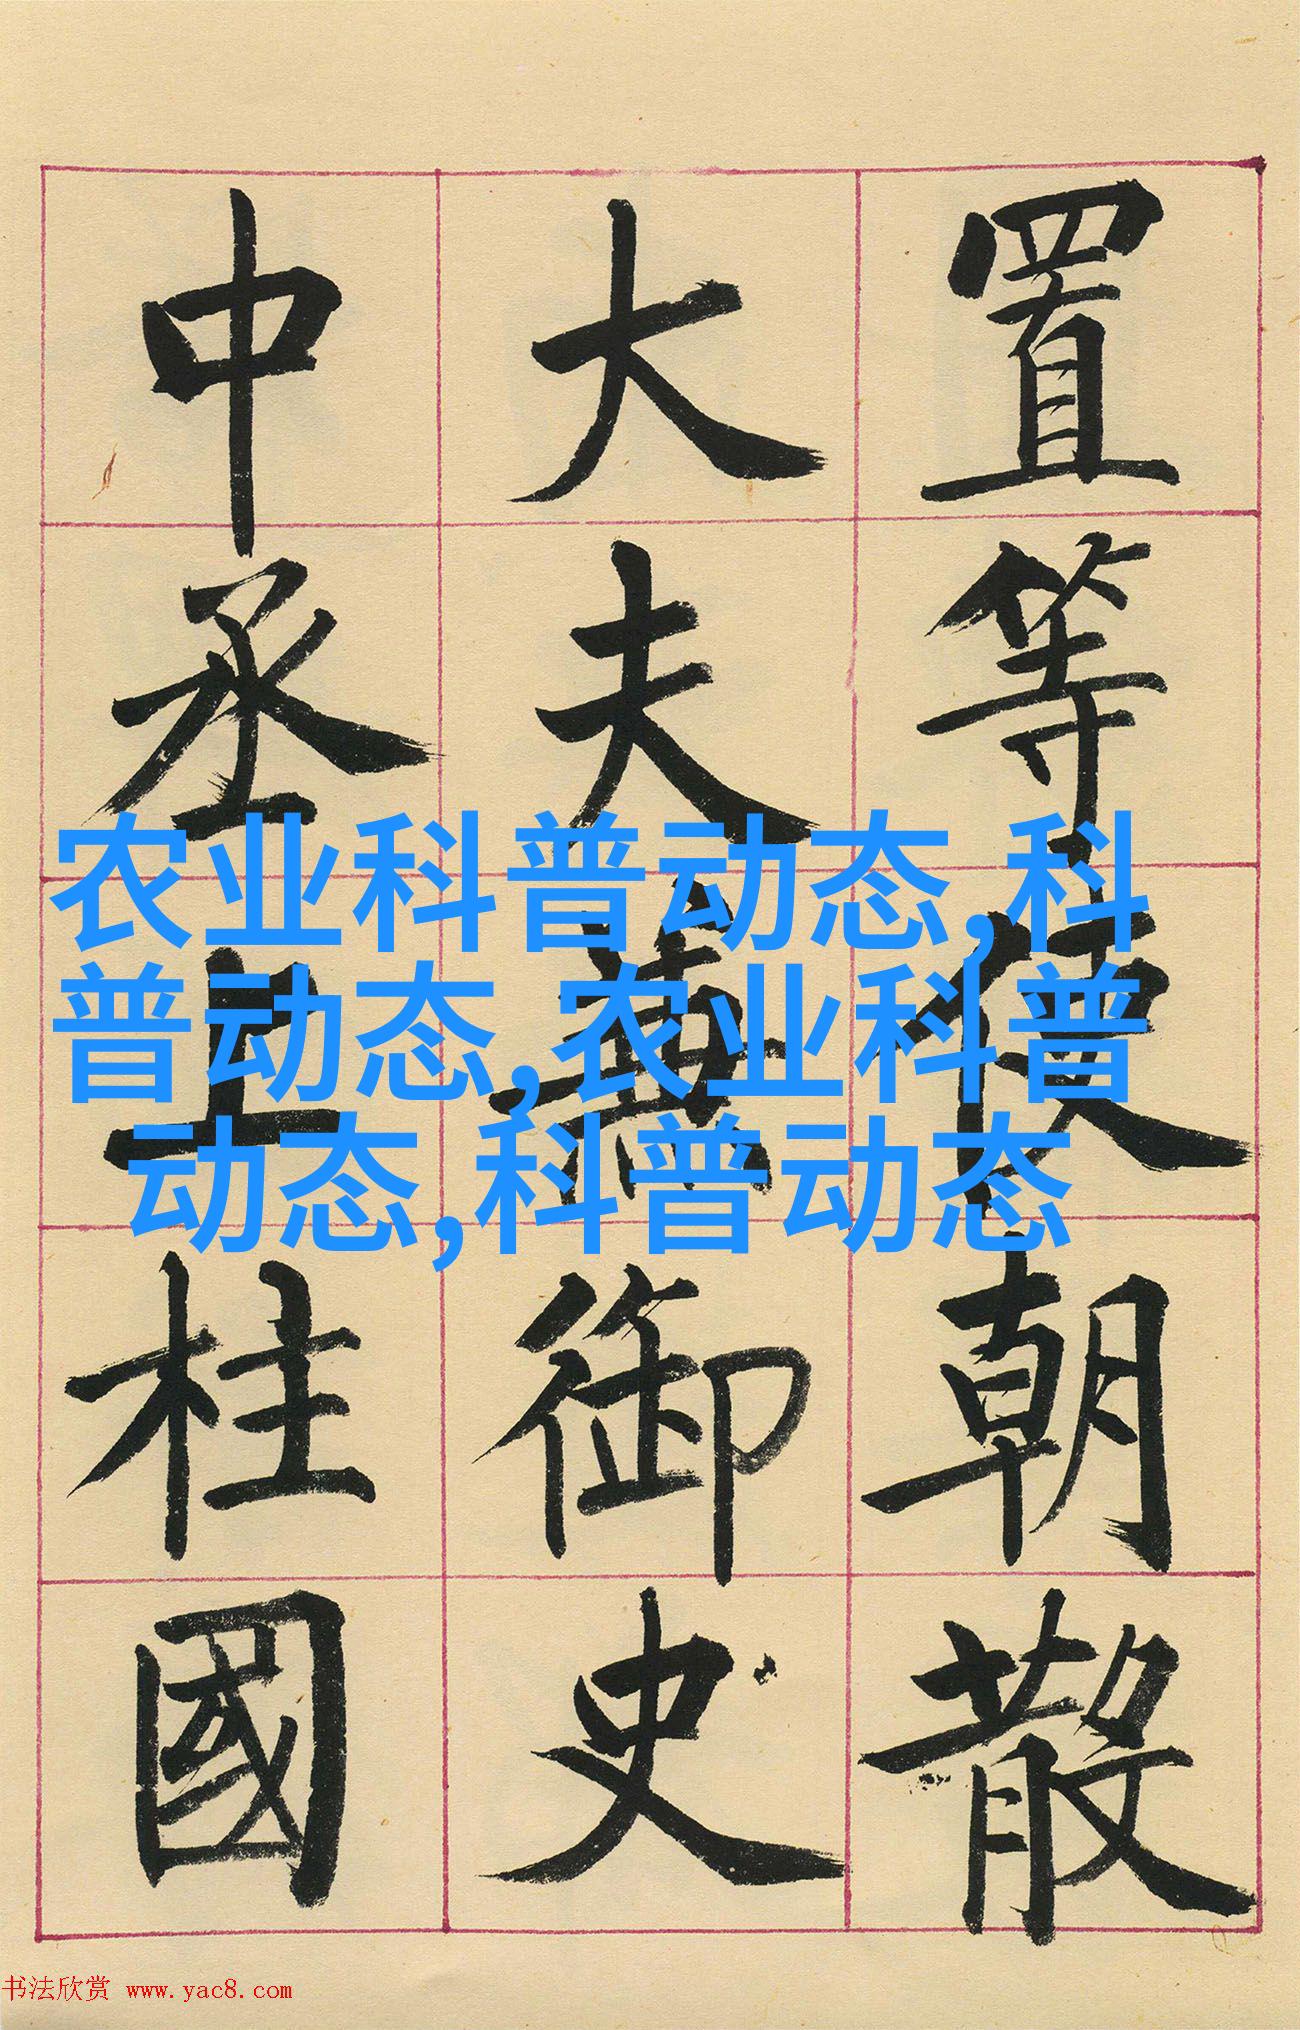 置等使朝散
大夫兼御史
中丞上柱國
农业科普动态,科
普动态,农业科普
动态,科普动态
书法欣赏 www.yac8.com